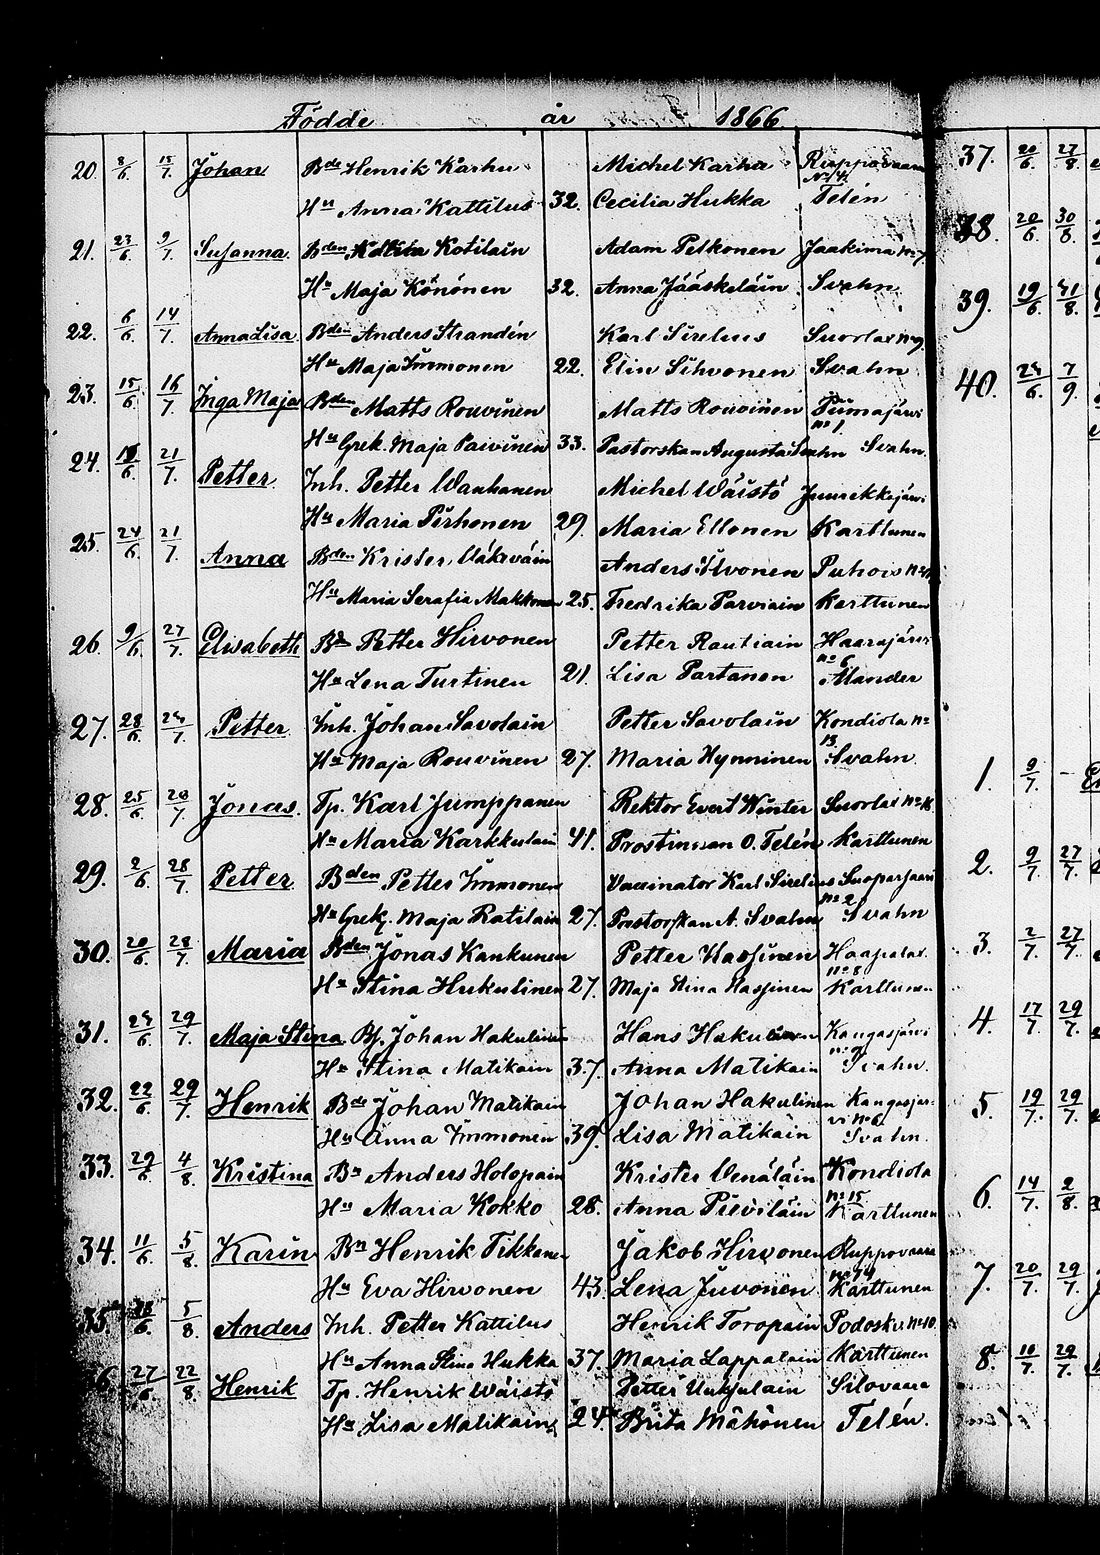 Födde år 1866
20. 8/6. 15/7. Johan Bde Henrik Karhu Michel Karhu Ruppovaara
No 14.
Hu Anna Kattilus 32. Cecilia Hukka Telén
21. 23/6. 9/7. Susanna. Bden Kotilain Adam Pelkonen Jaakima No 7
Hu Maja Könönen 32. Anna Jääskeläin Svahn
22. 6/6. 14/7. Anna Lisa. Bden Anders Strandén Karl Sirelius Suorlax No 9.
Hu Maja Immonen 22. Elin Sihvonen Svahn
23. 15/6. 16/7. Inga Maja Bden Matts Rouvinen Matts Rouvinen Tiimajärvi
no 1
Hu Grek. Maja Paivinen 33. Pastorskan Augusta Svahn Svahn.
24. 21/7. Petter. Inh. Petter Wanhanen Michel Wäistö Juurikkajärvi
Hu Maria Pirhonen 29. Maria Ellonen Karttunen
25. 24/6. 21/7. Anna Bden Krister Anders Ilvonen Puhois
Hu Maria Serafia Makkonen 25. Fredrika Parviain Karttunen
26. 9/6. 27/7. Elisabeth Bde Petter Hirvonen Petter Rautiain Haarajärvi
no 6
Hu Lena Turtinen 21. Lisa Partanen Alander
27. 28/6. 24/7. Petter. Inh. Johan Savolain Petter Savolain Kondiola no
13.
Hu Maja Rouvinen 27. Maria Hynninen Svahn
28. 25/6. 28/7. Jonas. Tp. Karl Jumppanen Rektor Evert Winter Suorlax No 16.
Hu Maria Karkkulain 41. Prostinnan O. Telén Karttunen
29. 2/6. 28/7. Petter. Bden Petter Immonen Vaccinator Karl Sirelius Suoparsaari
no 2
Hu Grek. Maja Ratilain 27. Pastorskan A. Svahn Svahn
30. 20/6. 28/7. Maria Bden Jonas Kankunen Petter Hassinen Haapalax.
no 8
Hu Stina Hukulinen 27. Maja Stina Hassinen Karttunen
31. 24/6. 29/7. Maja Stina Bs. Johan Hakulinen Hans Hakulinen Kangasjärvi
Hu Stina Matikain 37. Anna Matikain Svahn.
32. 22/6. 29/7. Henrik Bde Johan Matikain Johan Hakulinen Kangasjär-
vi No 6.
Hu Anna Immonen 39. Lisa Matikain Svahn.
33. 29/6. 4/8. Kristina Bn Anders Holopain Krister Venäläin Kondiola
no 15
Hu Maria Kokko 28. Anna Pieviläin Karttunen
34. 11/6. 5/8. Karin Bn Henrik Tikkanen Jakob Hirvonen Ruppovaara
no 14
Hu Eva Hirvonen 43. Lena Juvonen Karttunen
35. 5/8. Anders Inh. Petter Kattilus Henrik Toropain Podoski No 10.
Hu Anna Stina Hukka 37. Maria Lappalain Karttunen
27/6. 22/8. Henrik Tp. Henrik Wäistö Petter Silovaara
Hu Lisa Matikain 24 Brita Mähönen Telén.
37. 20/6. 27/8.
38. 20/6. 30/8.
39. 19/6. 31/8.
40. 24/6. 7/9.
1. 9/7. -
2. 9/7. 27/7.
3. 2/7. 27/7.
4. 17/7. 29/7.
5. 19/7. 29/7.
6. 14/7. 2/8.
7. 20/7. 29/7.
8. 10/7. 29/7.